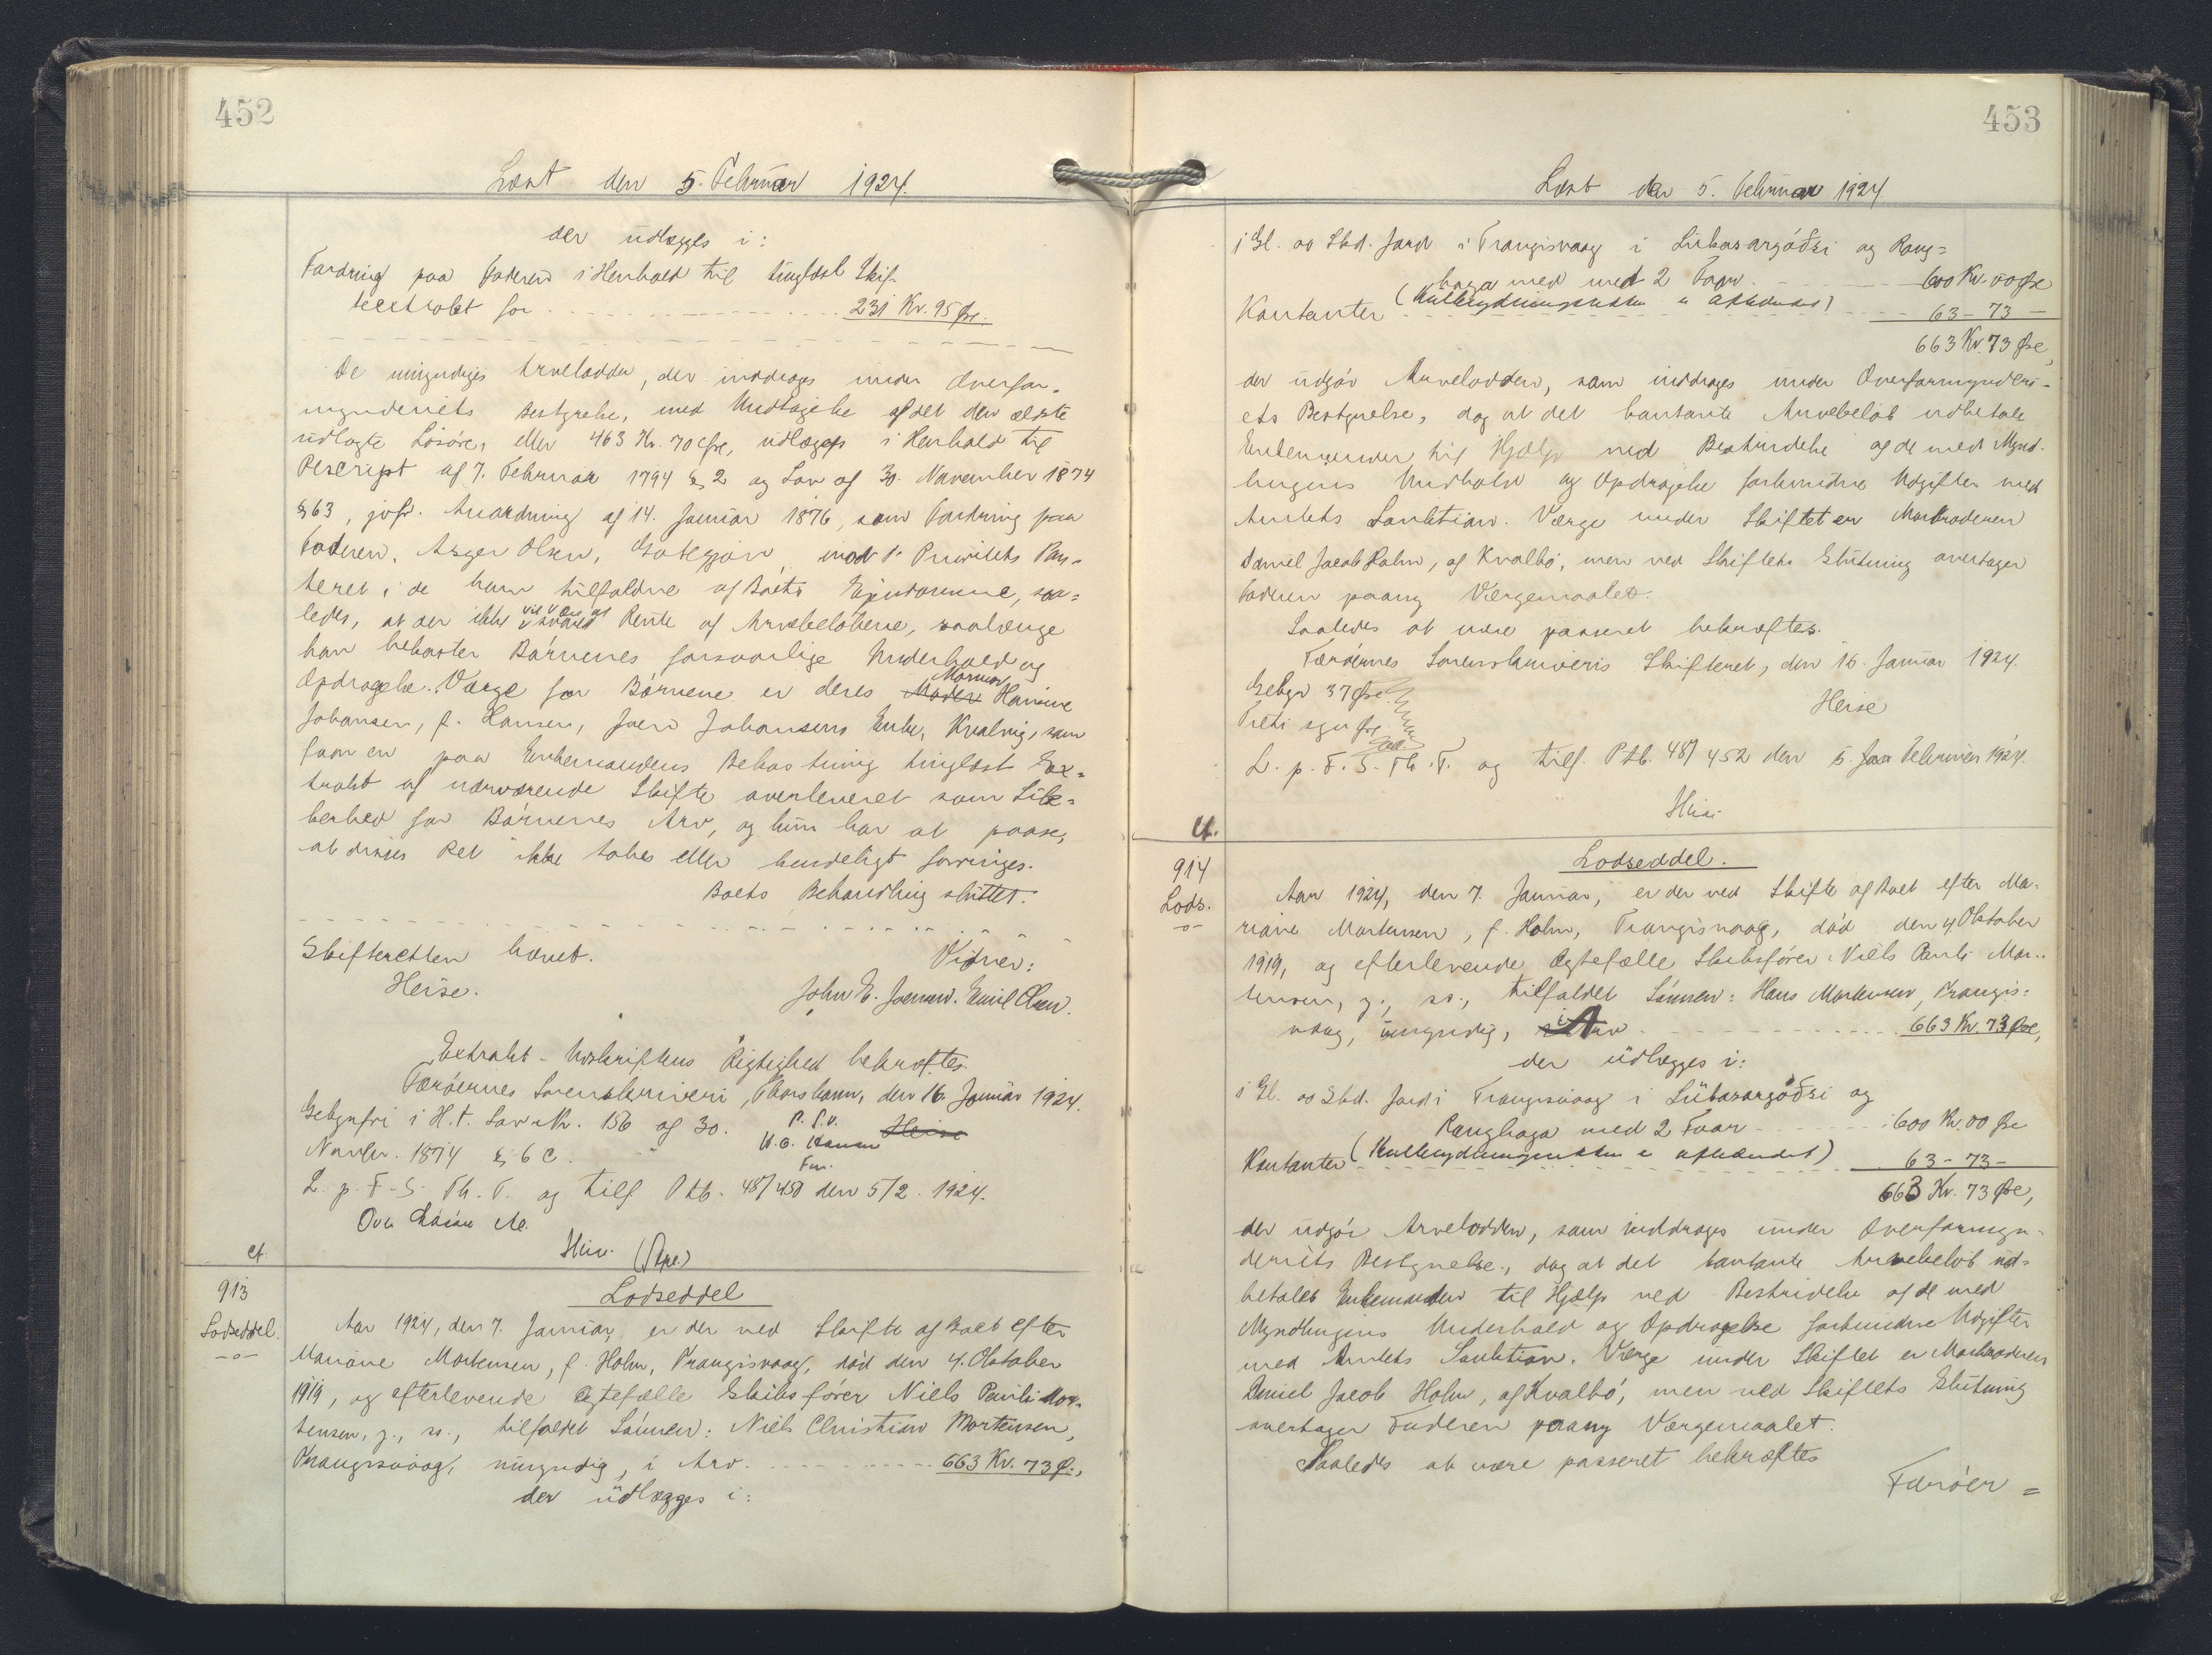 452
Læst den 5. Februar 1924.
der udlægges i:
Fordring paa Faderen i Henhold til tinglæst Skif-
teextrakt for 231 Kr. 95 Øre.
De umyndiges Arvelodder, der inddrages under Overfor-
mynderiets Bestyrelse, med Undtagelse af det den ældste
udlagte Løsøre, eller 463 Kr. 70 Øre, udlægges i Henhold til
Rescript af 7. Februar 1794 § 2 og Lov af 30. November 1874
§ 63, jvfr. Anordning af 14. Januar 1876, som Fordring paa
Faderen, Asger Olsen, Gotegjov imod 1. Prioritets Pan-
teret i de ham tilfaldne af Boets Ejendomme, saa-
ledes, at der ikke vil være at svare Rente af Arvebeløbene, saalænge
han bekoster Børnenes forsvarlige Underhold og
Opdragelse. Værge for Børnene er deres Moder Mormor Hansine
Johansen, f. Hansen, Joen Johansens Enke, Kvalvig, som
faar en paa Enkemandens Bekostning tinglæst Ex-
trakt af nærværende Skifte overleveret som Sik-
kerhed for Børnenes Arv, og hun har at paase,
at disses Ret ikke tabes eller kendeligt forringes.
Boets Behandling sluttet.
Skifteretten hævet.
Heise.
Vidner:
John E. Joensen. Emil Olsen.
Extrakt-Udskriftens Rigtighed bekræftes
Færøernes Sorenskriveri, Thorshavn, den 16. Januar 1924.
Gebyrfri i H.t. Lov Nr. 156 af 30.
P. S. v.
Heise
Novbr. 1874 § 6 C.
Fm.
L. p. F. S. Th. T. og tilf Ptb. 48/450 den 5/2. 1924.
Heise
cf.
913
Lodseddel.
Lodseddel
Aar 1924, den 7. Januar, er der ved Skifte af Boet efter
Mariane Mortensen, f. Holm, Trangisvaag, død den 4. Oktober
1919, og efterlevende Ægtefælle Skibsfører Niels Pauli Mor-
tensen, g., ss., tilfaldet Sønnen: Niels Christian Mortensen,
Trangisvaag, umyndig, i Arv 663 Kr. 73 Ø.,
der udlægges i:
453
Læst den 5. Februar 1924
i Gl. og Skd. Jord i Trangisvaag i Lübarargóðsi og Rang-
haga med med 2 Faar 600 Kr. 00 Øre
Kontanter 63 - 73 -
663 Kr. 73 Øre,
der udgør Arvelodden, som inddrages under Overformynderi-
ets Bestyrelse, dog at det kontante Arvebeløb udbetales
Enkemanden til Hjælp ved Bestridelse af de med Mynd-
lingens Underhold og Opdragelse forbundne Udgifter med
Amtets Sanktion. Værge under Skiftet er Morbroderen
Daniel Jacob Holm, af Kvalbø, men ved Skiftets Slutning overtager
Faderen paany Værgemaalet.
Saaledes at være passeret bekræftes.
Færøernes Sorenskriveris Skifteret, den 16. Januar 1924.
Gebyr 37 Øre
Heise
L. p. F. S. Th. T. og tilf. Ptb. 48/452 den 5. Februar 1924.
Heise
cf.
914
Lods.
Lodseddel.
Aar 1924, den 7. Januar, er der ved Skifte af Boet efter Ma-
riane Mortensen, f. Holm, Trangisvaag, død den 4 Oktober
1919, og efterlevende Ægtefælle Skibsfører Niels Pauli Mor-
tensen, g., ss., tilfaldet Sønnen: Hans Mortensen, Trangis-
vaag, umyndig, i Arv 663 Kr. 73 Øre,
der udlægges i:
i Gl. og Skd. Jord i Trangisvaag i Lübarargóðsi og
Ranghaga med 2 Faar 600 Kr. 00 Øre
Kontanter 63 - 73 -
663 Kr. 73 Øre,
der udgør Arvelodden, som inddrages under Overformyn-
deriets Bestyrelse, dog at det kontante Arvebeløb ud-
betales Enkemanden til Hjælp ved Bestridelse af de med
Myndlingens Underhold og Opdragelse forbundne Udgifter
med Amtets Sanktion. Værge under Skiftet er Morbroderen
Daniel Jacob Holm, af Kvalbø, men ved Skiftets Slutning
overtager Faderen paany Værgemaalet.
Saaledes at være passeret bekræftes
Færøer-